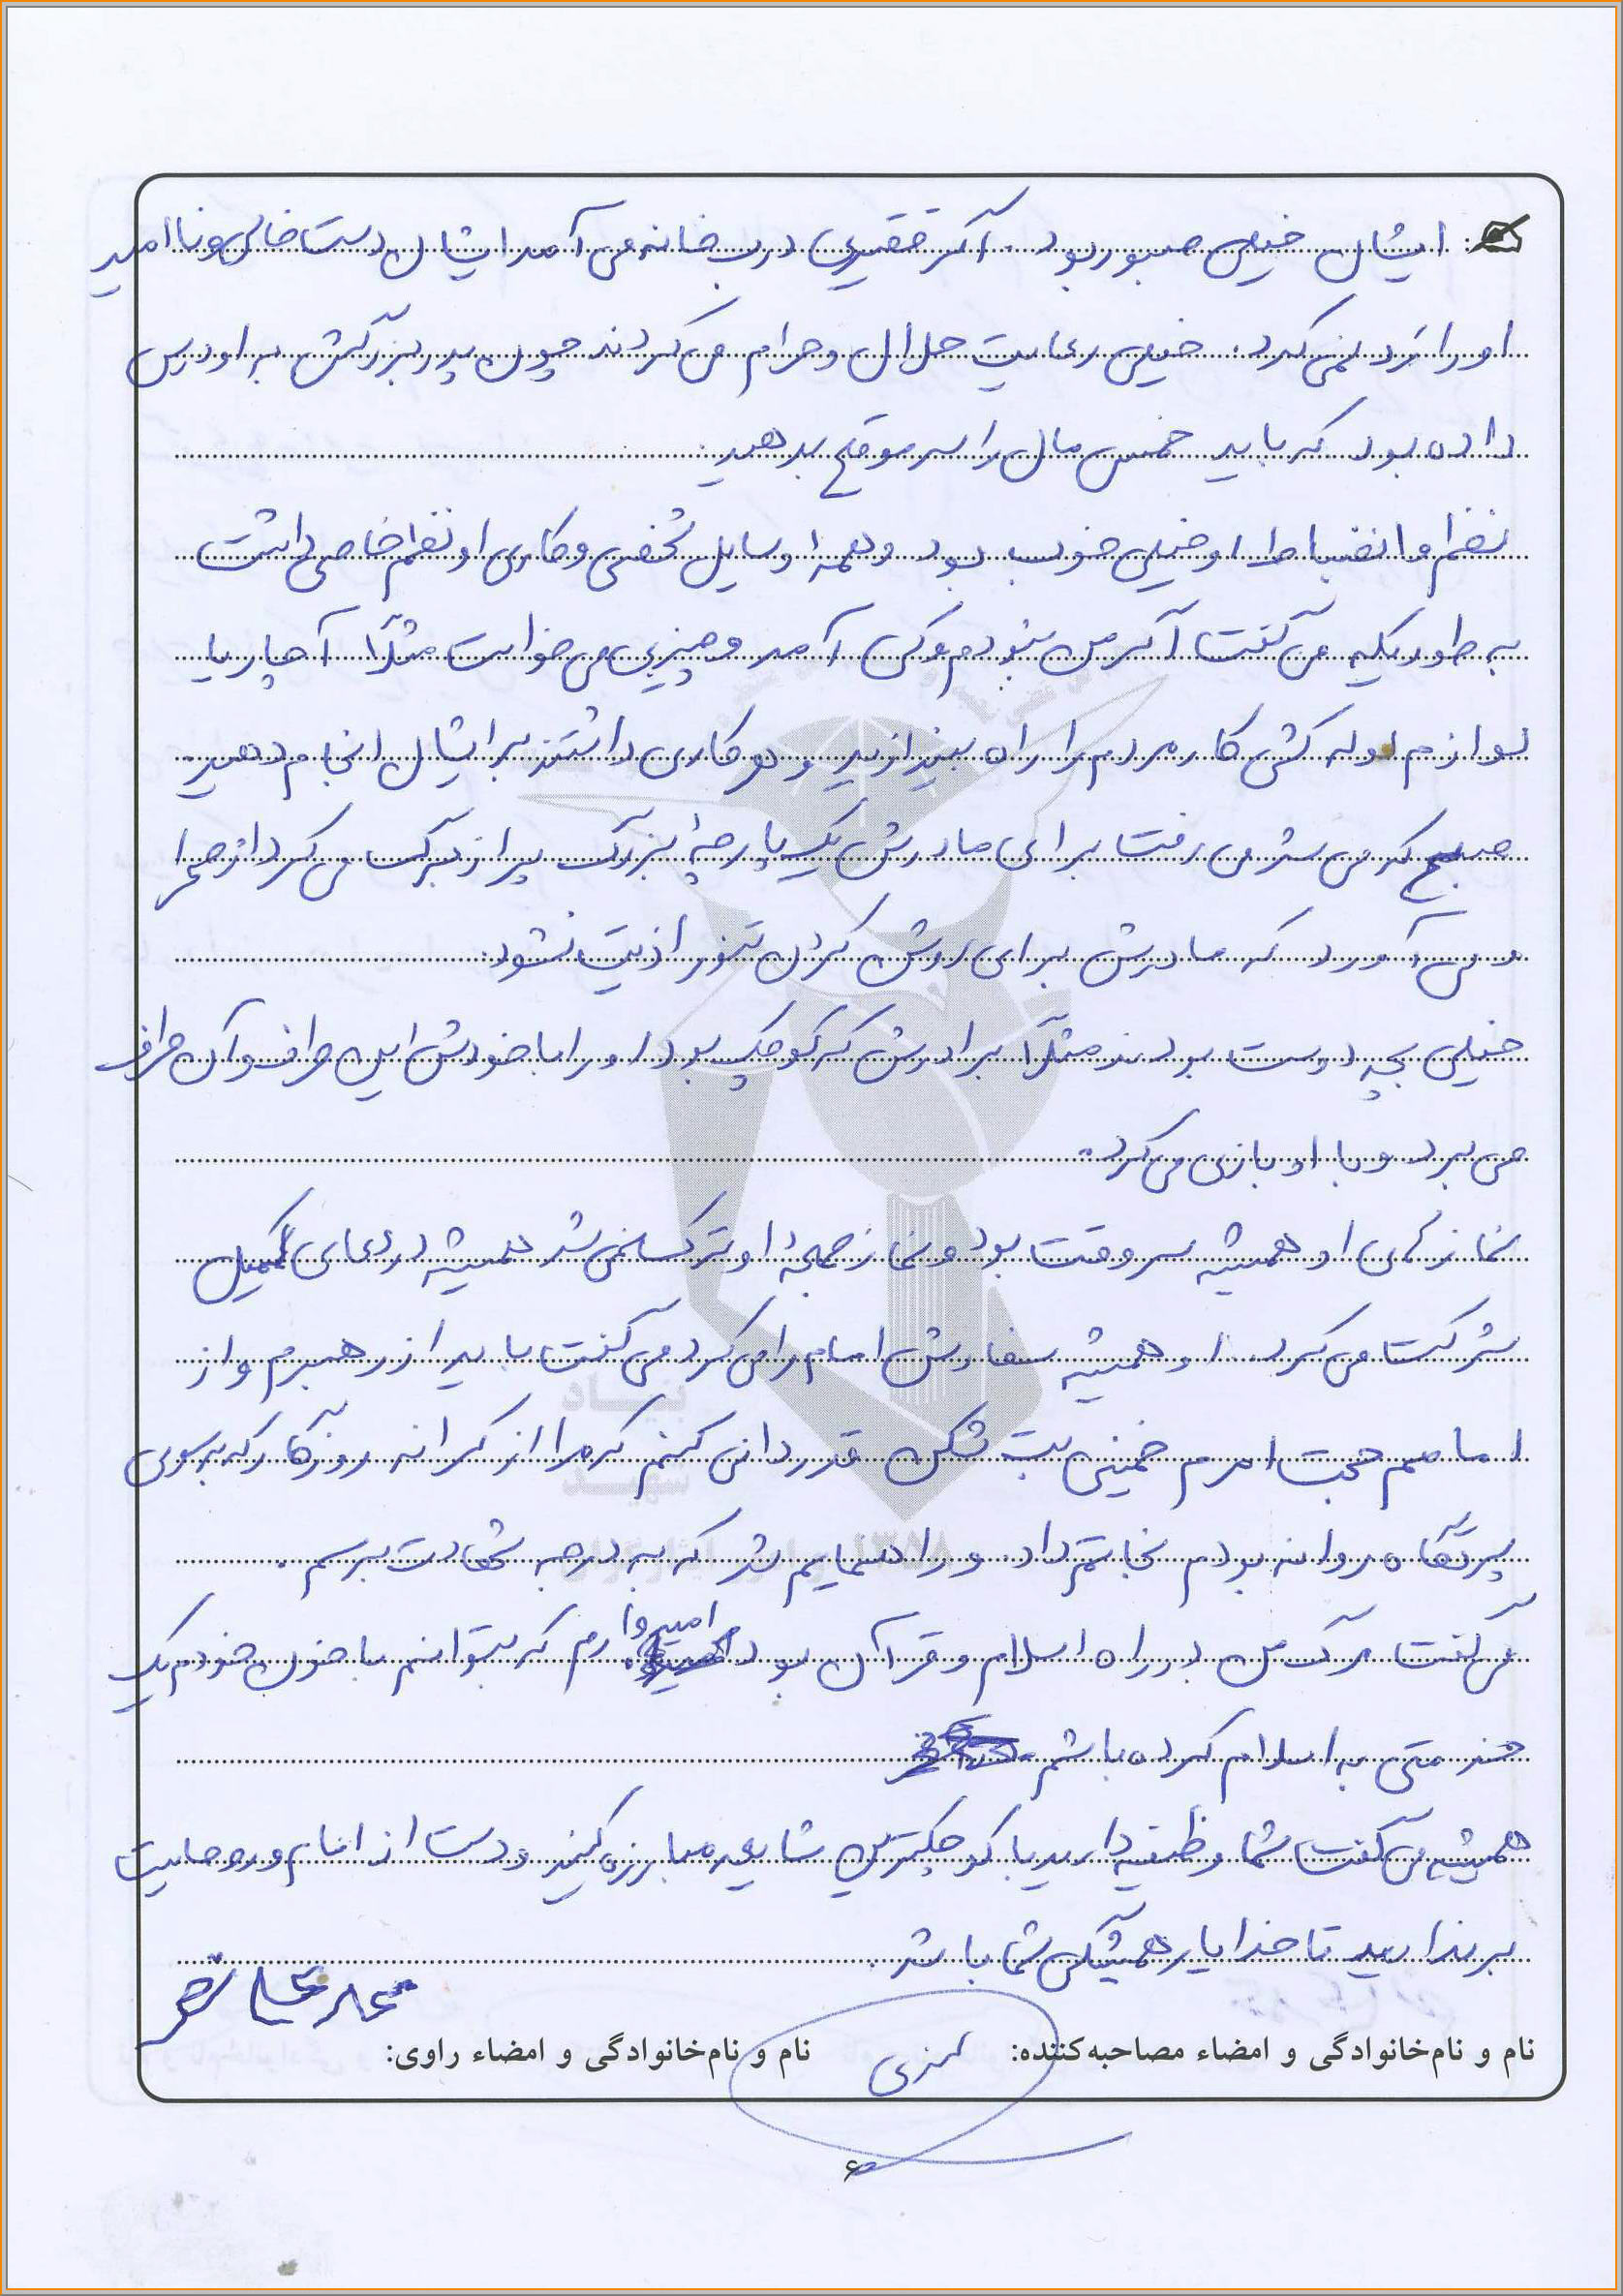 ایشان خیلی صبور بود. اگر فقیری درب خانه می آمد ایشان دست خالی و نا امید
او را رد نمی کرد. خیلی رعایت حلال و حرام می کردند چون پدر بزرگش به او درس
داده بود که باید خمس مال را سر موقع بدهید.
نظم و انضباط او خیلی خوب بود و همه وسایل شخصی و کاری او نظم خاصی داشت
به طوریکه می گفت اگر من نبودم و کسی آمد و چیزی می خواست مثلاً آچار یا
لوازم لوله کشی کار مردم را راه بیندازید و هر کاری داشتند برایشان انجام دهید.
صبح که می شد می رفت برای مادرش یک پارچهٔ بزرگ پر از برگ می کرد از صحرا
و می آورد که مادرش برای روشن کردن تنور اذیت نشود.
خیلی بچه دوست بودند مثلاً برادرش که کوچک بود او را با خودش این طرف و آن طرف
می برد و با او بازی می کرد.
نمازهای او همیشه سر وقت بود و نماز جمعهٔ او ترک نمی شد همیشه در دعای کمیل
شرکت می کرد. او همیشه سفارش امام را می کرد می گفت باید از رهبرم و از
امامم خمینی بت شکن قدردانی کنم که مرا از کرانه روزگار که به سوی
پرتگاه روانه بودم نجاتم داد و راهنمایم شد که به درجه شهادت برسم.
می گفت مرگ من در راه اسلام و قرآن بود امیدوارم که بتوانم با خون خودم یک
خدمتی به اسلام کرده باشم.
همیشه می گفت شما وظیفه دارید با کوچکترین شایعه مبارزه کنید و دست از امام و روحانیت
برندارید تا خدا یار همیشگی شما باشد.
نام و نام‌خانوادگی و امضاء مصاحبه‌کننده: نام و نام‌خانوادگی و امضاء راوی:
بنیاد
شهید
۶